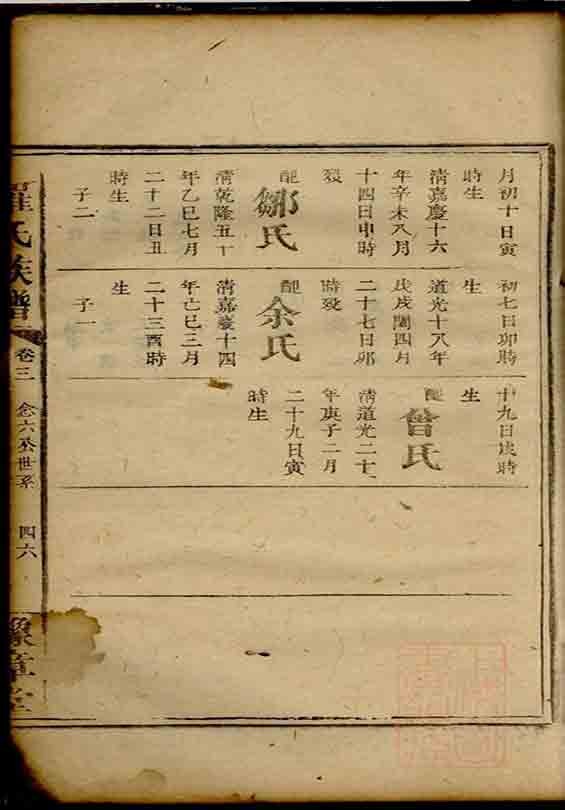 月初十日寅
時生
清嘉慶十六
年辛未八月
十四日申時
歿
配鄒氏
清乾隆五十
年乙巳七月
二十二日丑
時生
子二
初七日卯時
生
道光十八年
戊戌閏四月
二十七日卯
時歿
配余氏
清嘉慶十四
年亡巳三月
二十三酉時
生
子一
十九日戌時
生
配曾氏
清道光二十
年庚子二月
二十九日寅
時生
羅氏族譜
卷三
念六公世系
四六
豫章堂